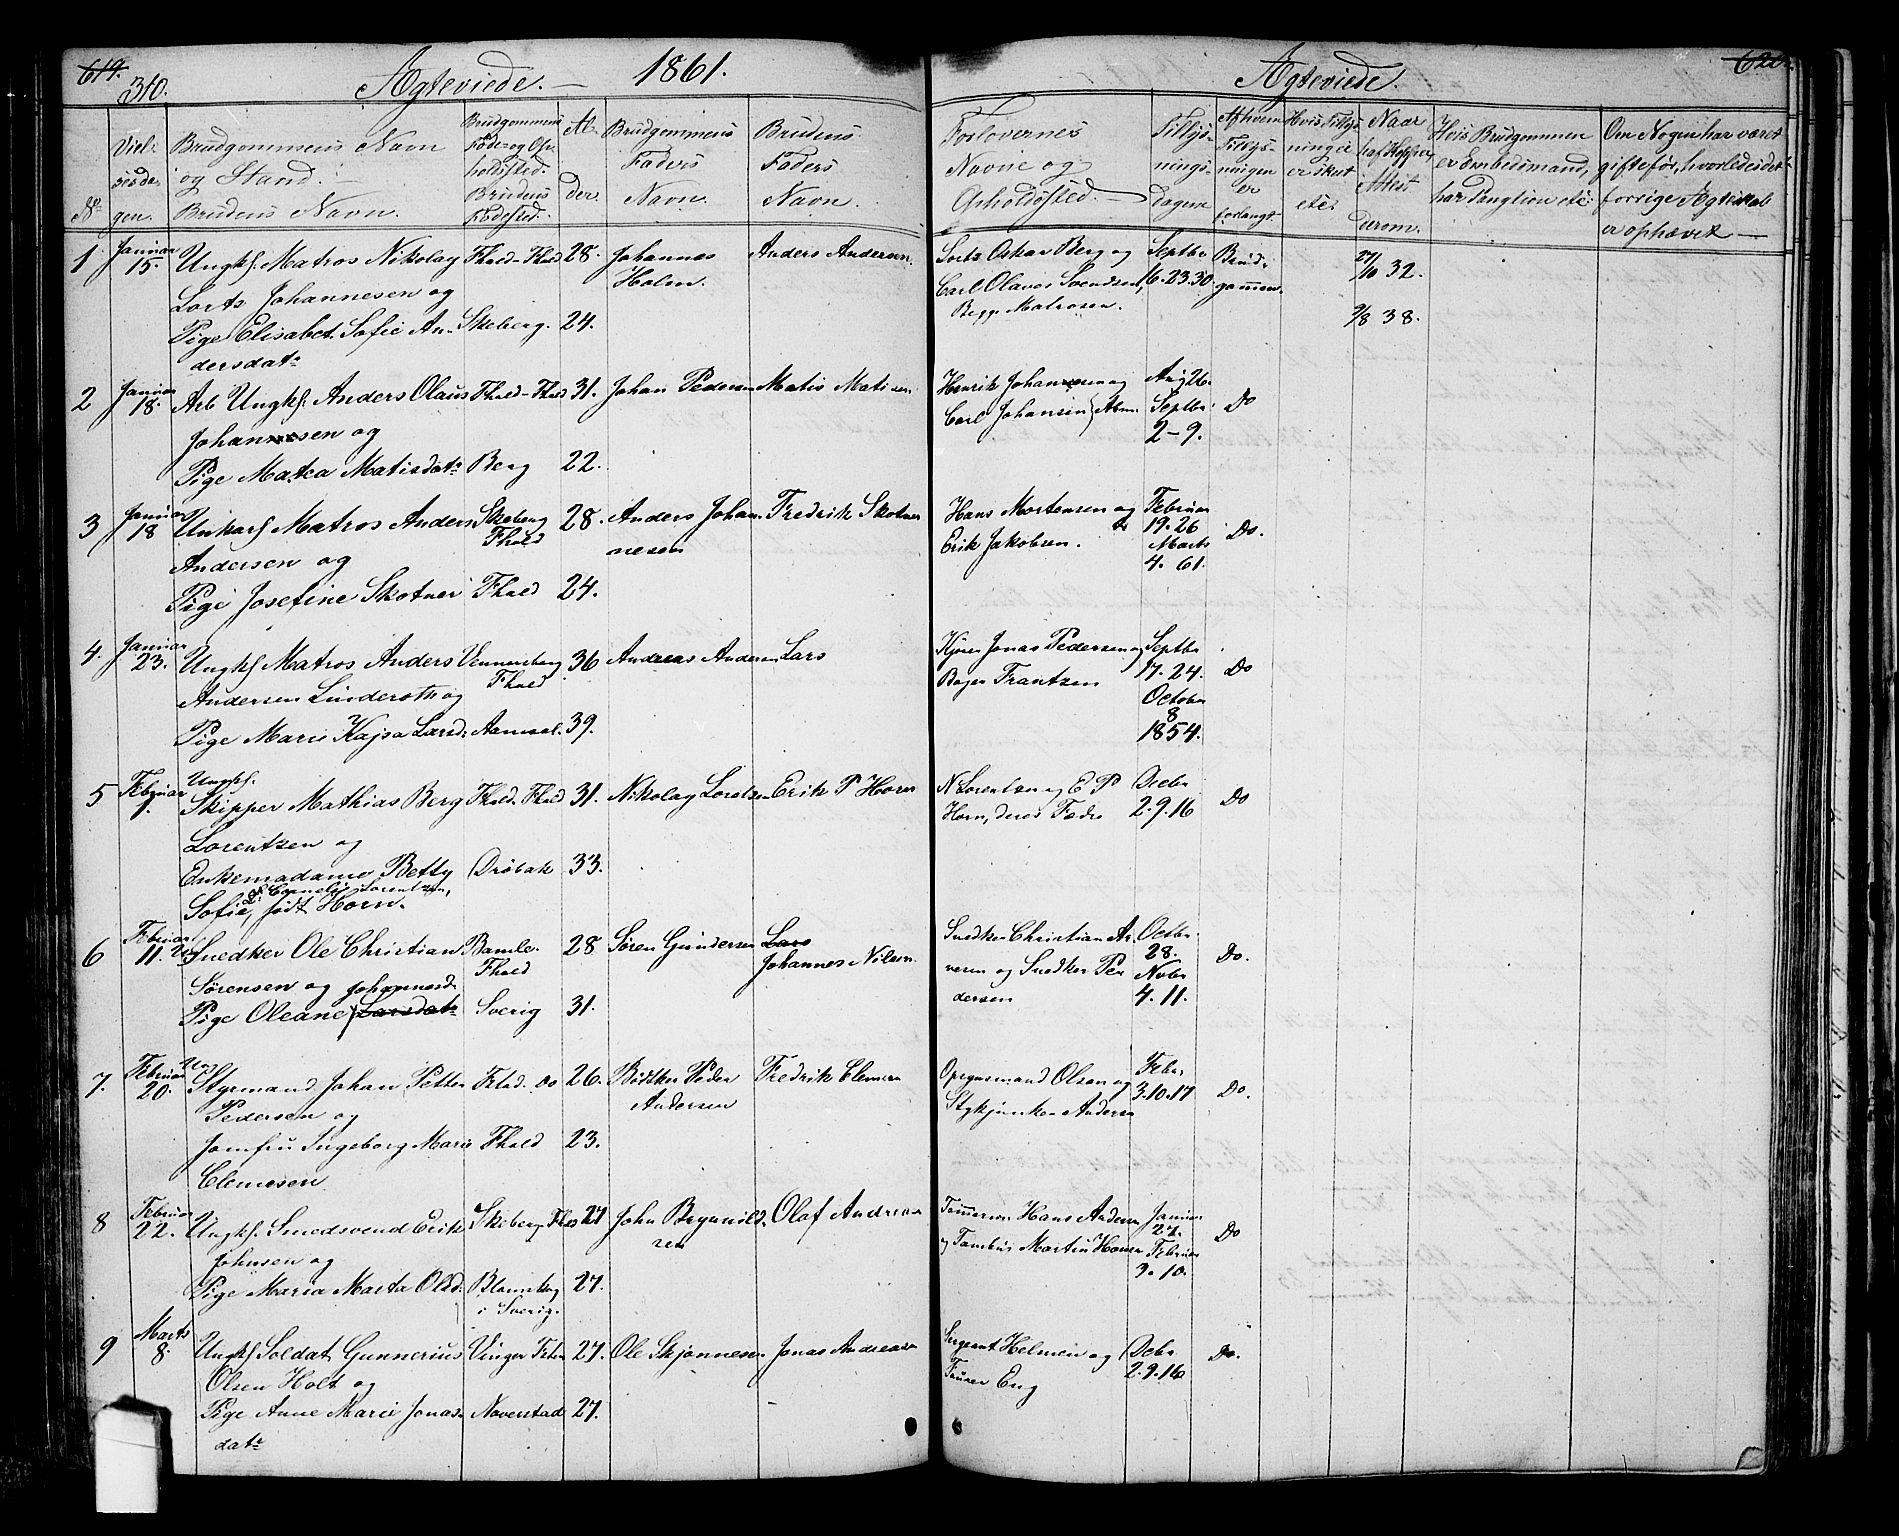 619. 310. Ægteviede. — 1861.
Ægteviede. 620.
No
Vielsesdagen.
Brudgommens Navn
og Stand.
Brudens Navn.
Brudgommens
Føde- og Op-
holdssted.
Brudens
Fødested.
Al-
der.
Brudgommens
Faders
Navn.
Brudens
Faders
Navn.
Forlovernes
Navne og
Opholdssted.
Tillys-
nings-
Dagene
Af hvem
Tillys-
ningen
er
forlangt
Hvis Tillys-
ning ei
er skeet
etc.
Naar
haft Kopper,
Attest
derom.
Hvis Brudgommen
er Embedsmand,
har Pengtion etc.
Om Nogen har været
gift før, hvorledes det
forrige Ægteskab
er ophævet —
1 Januar 15. Ungkf. Matros Nikolay Fhald-Fhald 28. Johannes Anders Andersen.
Lorts Johannesen og Holm.
Pige Elisabet Sofie An- Skeberg. 24.
dersdatr
Lortz Oskar Berg og Septbr Brud-
Carl Olaves Svendsen, 16.23.30 gommen.
Begge Matroser.
27/10 32.
9/8 38.
2 Januar 18. Arb Ungkf. Anders Olaus Fhald-Fhald 31. Johan Pedersen Matis Matisen
Johannesen og
Pige Matea Matisdatr Berg 22.
Henrik Johannesen og Aug 26.
Carl Johansen Septbr Do
2-9.
3 Januar 18 Unkarl Matros Anders Skeberg 28. Anders Johan- Fredrik Skotner
Andersen og Fhald nesen
Pige Josefine Skotner Fhald 24.
Hans Mortensen og Februar
Erik Jakobsen. 19.26 Do.
Marts
4. 61.
4. Januar 23. Ungkf. Matros Anders Vennersberg 36 Andreas Andersen Lars
Andersen Linderoth og Fhald
Pige Marie Kajsa Larsd. Aamaal. 39.
Kjører Jonas Pedersen og Septbr
Bager Frantzen 17.24. Do
October
8
1854.
5 Februar 1. Ungkf.
Skipper Mathias Berg Fhald. Fhald 31. Nikolay Lorentsen Erik P Horn
Lorentzen og
Enkemadame Betty Drøbak 33.
Cornelie Lorentzen,
Sofie, født Horn.
N Lorentzen og E P Decbr
Horn, deres Fædre 2.9.16 Do
6 Februar 11. Snedker Ole Christian Bamle. 28 Søren Gundersen Lars
Fhald Johannes Nilsen
Sørensen og Johannesd.
Pige Oleane Larsdatr Sverig 31.
Snedker Christian Ar- Octbr
28. Do.
vesen og Snedker Pe- Novbr
dersen 4. 11.
7. Februar 20. Ung
Styrmand Johan Petter Fhald. Do 26. Bødker Peder Fredrik Clemesen
Pedersen og Andersen
Jomfru Ingeborg Marie Fhald 23.
Clemesen
Opsynsmand Olsen og Febr
Stykjunker Andersen 3.10.17 Do.
8 Februar 22. Ungkf. Smedsvend Erik Skeberg Fhald 27 John Brynild- Olaf Andersen
Johnsen og sen
Pige Maria Marta Olsd. Blomskog 27.
i Sverig.
Tømmerm. Hans Andersen Januar
27. Do
og Tambur Martin Hansen Februar
3. 10.
9 Marts 8. Ungkf. Soldat Gunnerius Vinger Fsten 27. Ole Skjønnesen. Jonas Andreasen
Olsen Holt og
Pige Anne Marie Jonas- Naverstad 27.
datr
Sergeant Helmein og Decbr Do.
2.9.16
Eng